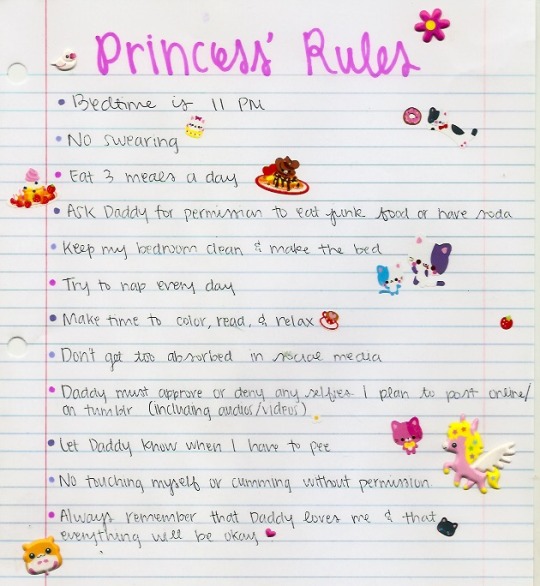 Princess' Rules
• Bedtime is 11 PM
• No swearing
• Eat 3 meals a day
• Ask Daddy for permission to eat junk food or have soda
• Keep my bedroom clean & make the bed
• Try to nap every day
• Make time to color, read, & relax
• Don't get too absorbed in social media
• Daddy must approve or deny any selfies I plan to post online/
on tumblr (including audios/videos)
• Let Daddy know when I have to pee
• No touching myself or cumming without permission.
• Always remember that Daddy loves me & that
everything will be okay